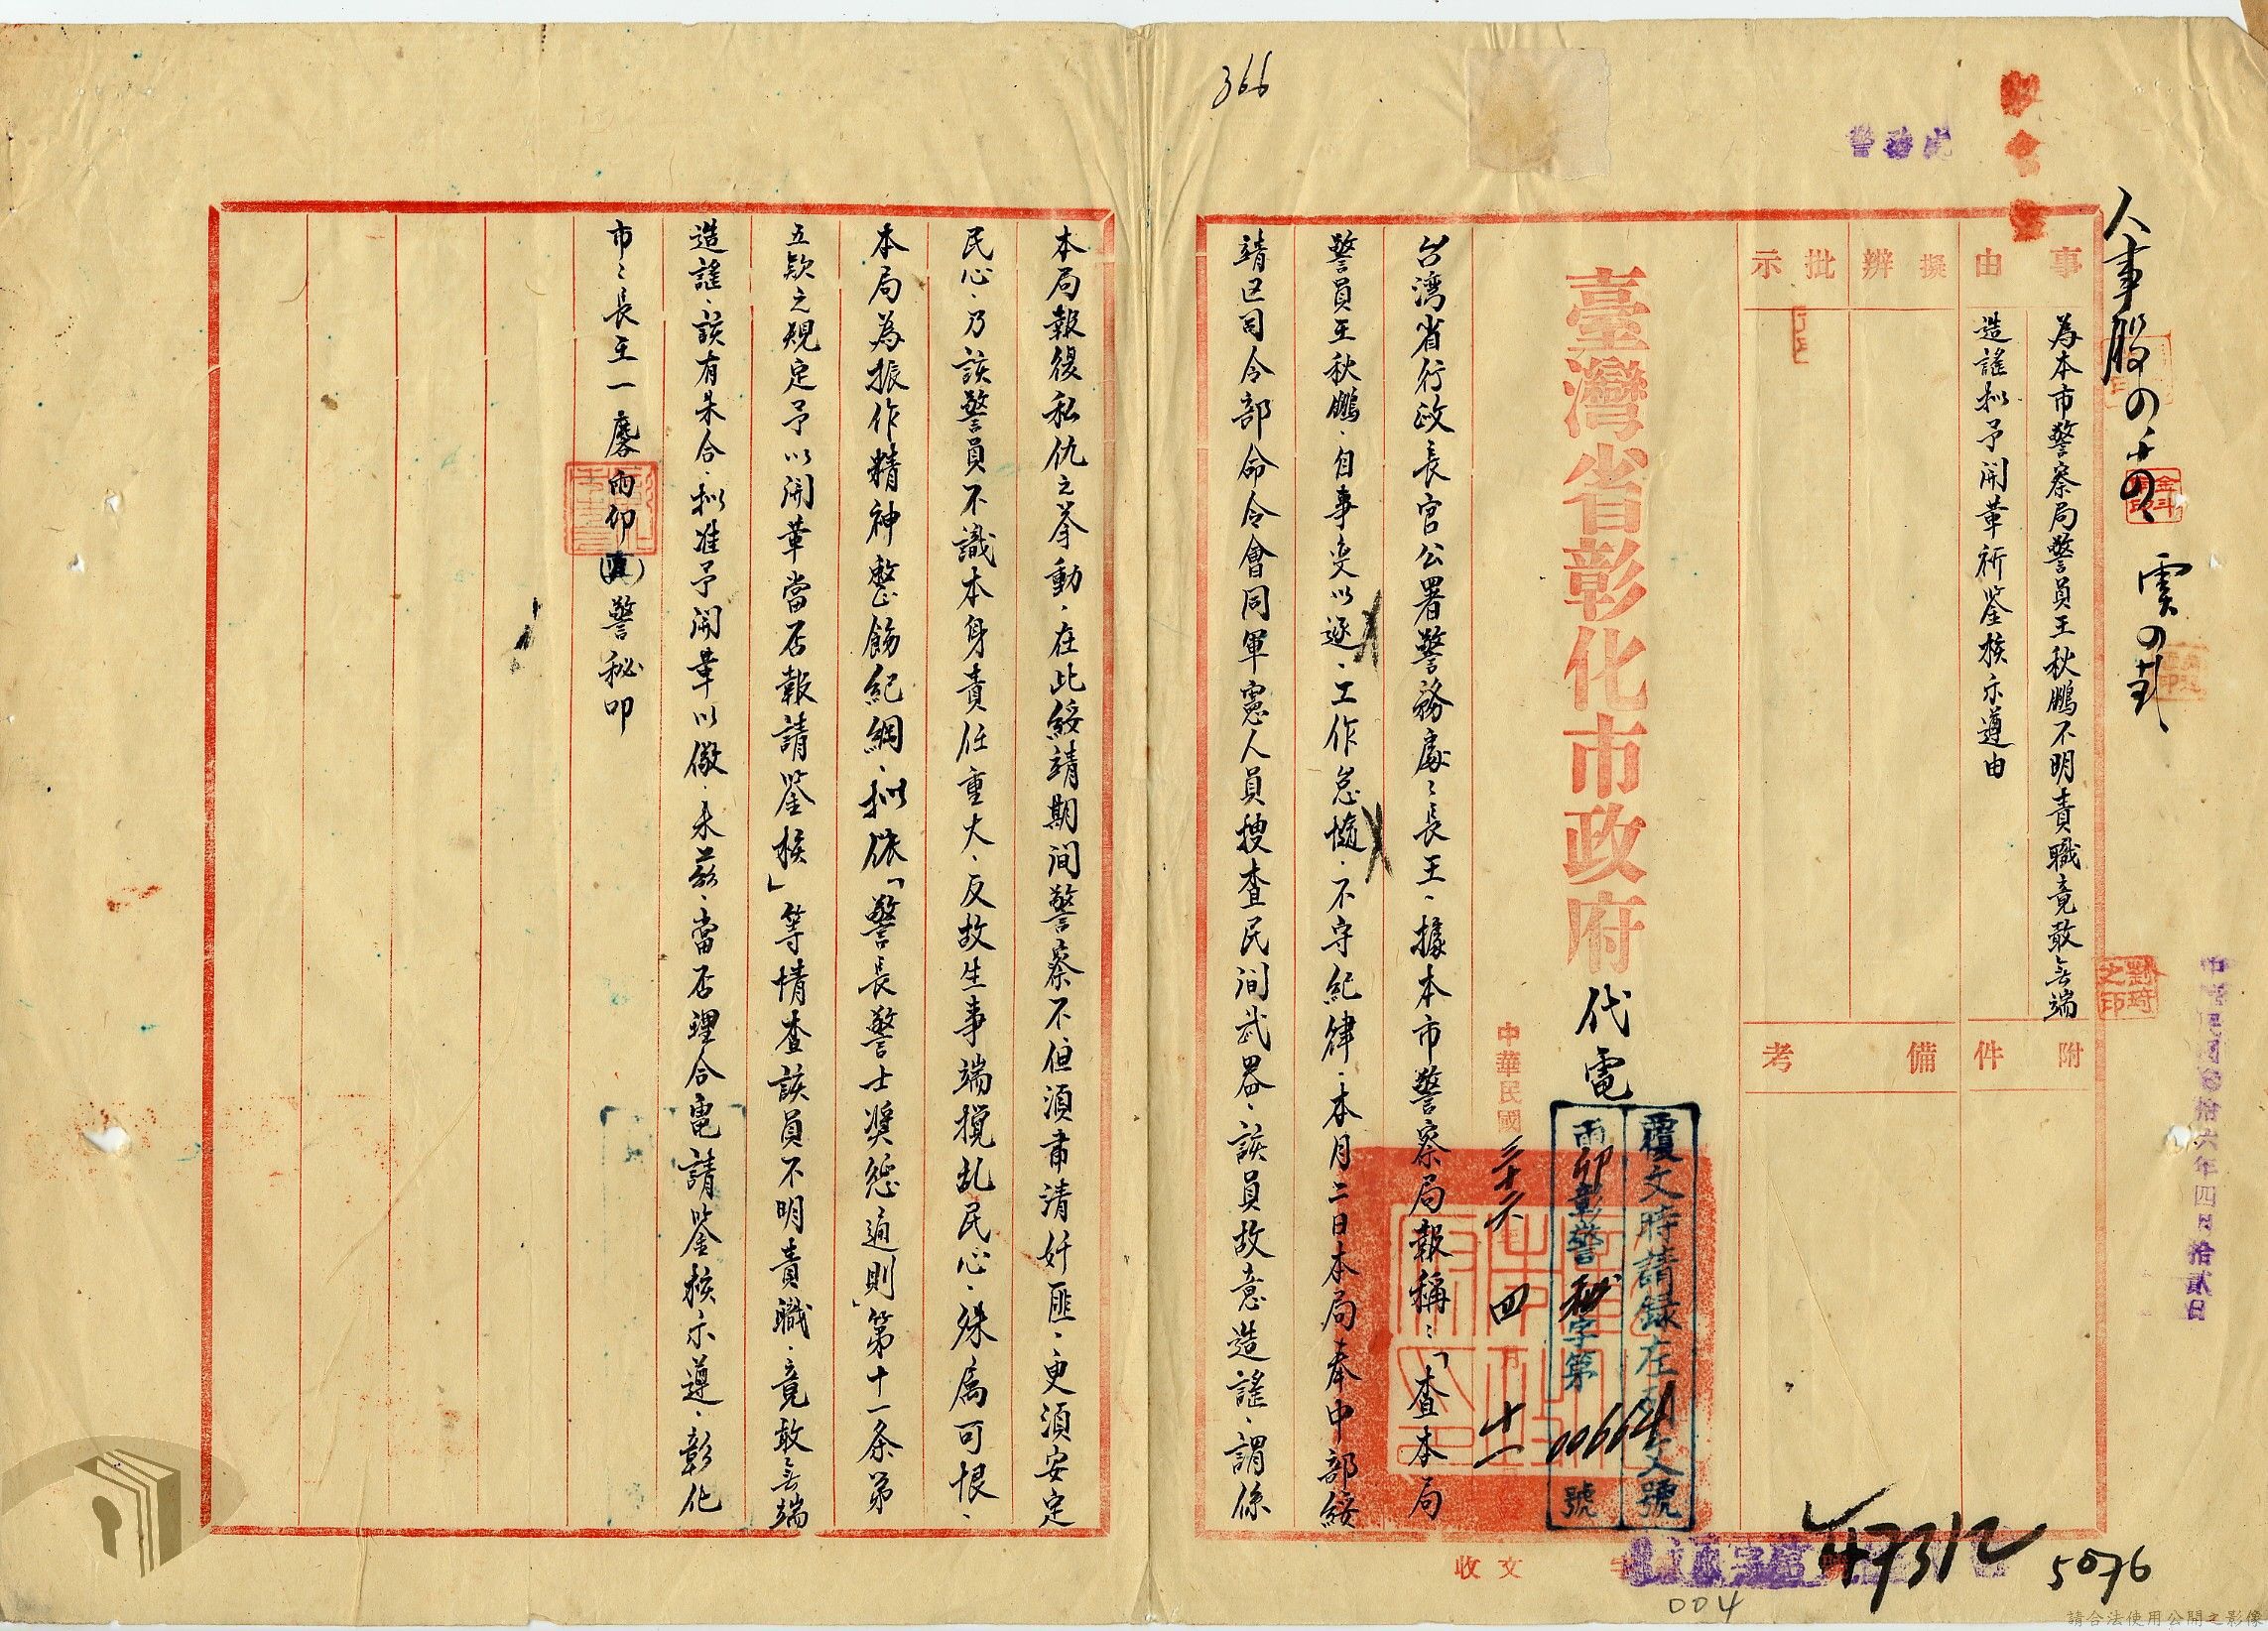 366
警務處
人事股
事由
為本市警察局警員王秋鵬不明責職竟敢無端
造謠拟予開革祈鉴核示遵由
擬辦
批示
附件
備考
臺灣省彰化市政府
代電
覆文時請錄左列文號
雨卯彰警秘字第00664號
中華民國三十六年四月十一
台湾省行政長官公署警務處〻長王、據本市警察局報稱：「查本局
警員王秋鵬、自事变以逐、工作怠惰、不守紀律、本月二日本局奉中部綏
靖区司令部命令會同軍憲人員搜查民间武器、該員故意造謠、謂係
本局報復私仇之举動、在此綏靖期间警察不但須肅清奸匪、更須安定
民心、乃該警員不識本身責任重大、反故生事端搅乱民心、殊属可恨、
本局為振作精神整飭紀綱、拟依「警長警士奨懲通則」第十一条第
五款之規定予以開革當否報請鉴核」等情查該員不明責職、竟敢無端
造謠、該有未合、拟准予開革以儆、未茲、當否理合電請鉴核示遵、彰化
市〻長王一麐雨卯(真)警秘叩
中華民國叁拾六年四月拾貳日
收文
字
號
47312
5076
004
請合法使用公開之影像